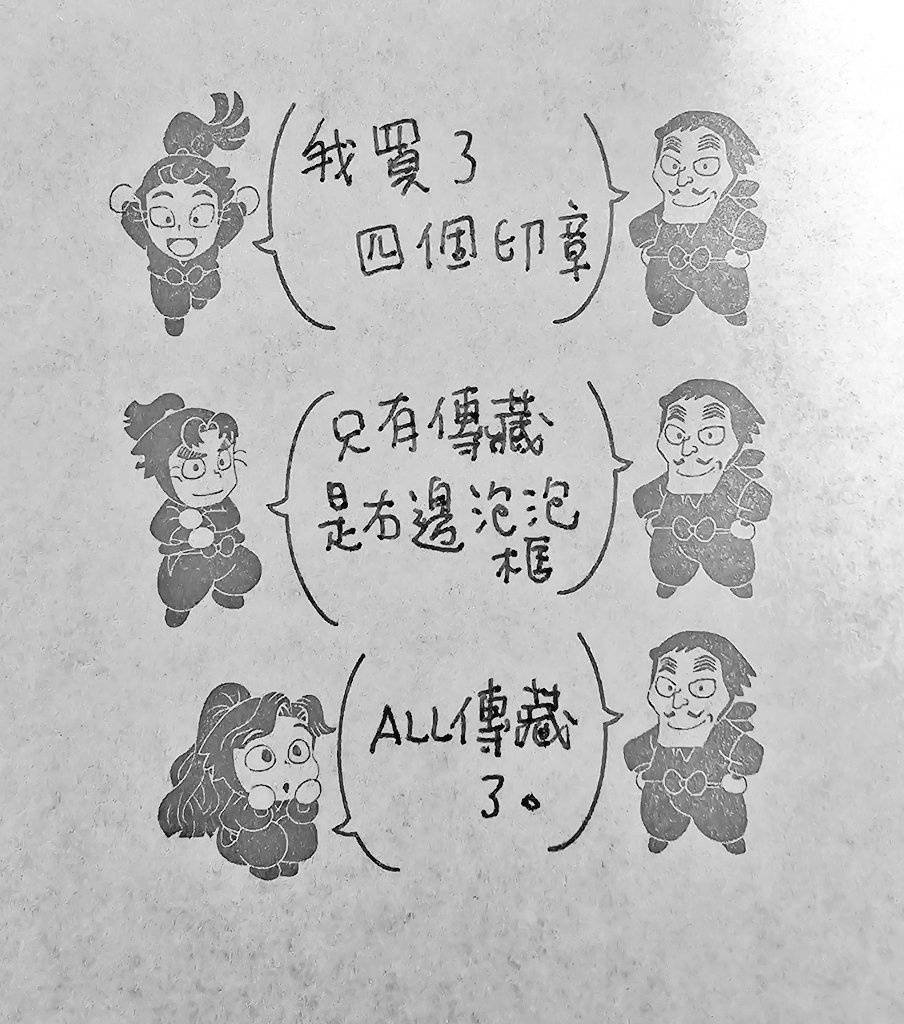 我買了
四個印章
只有傳藏
是右邊泡泡
框
ALL傳藏
了。